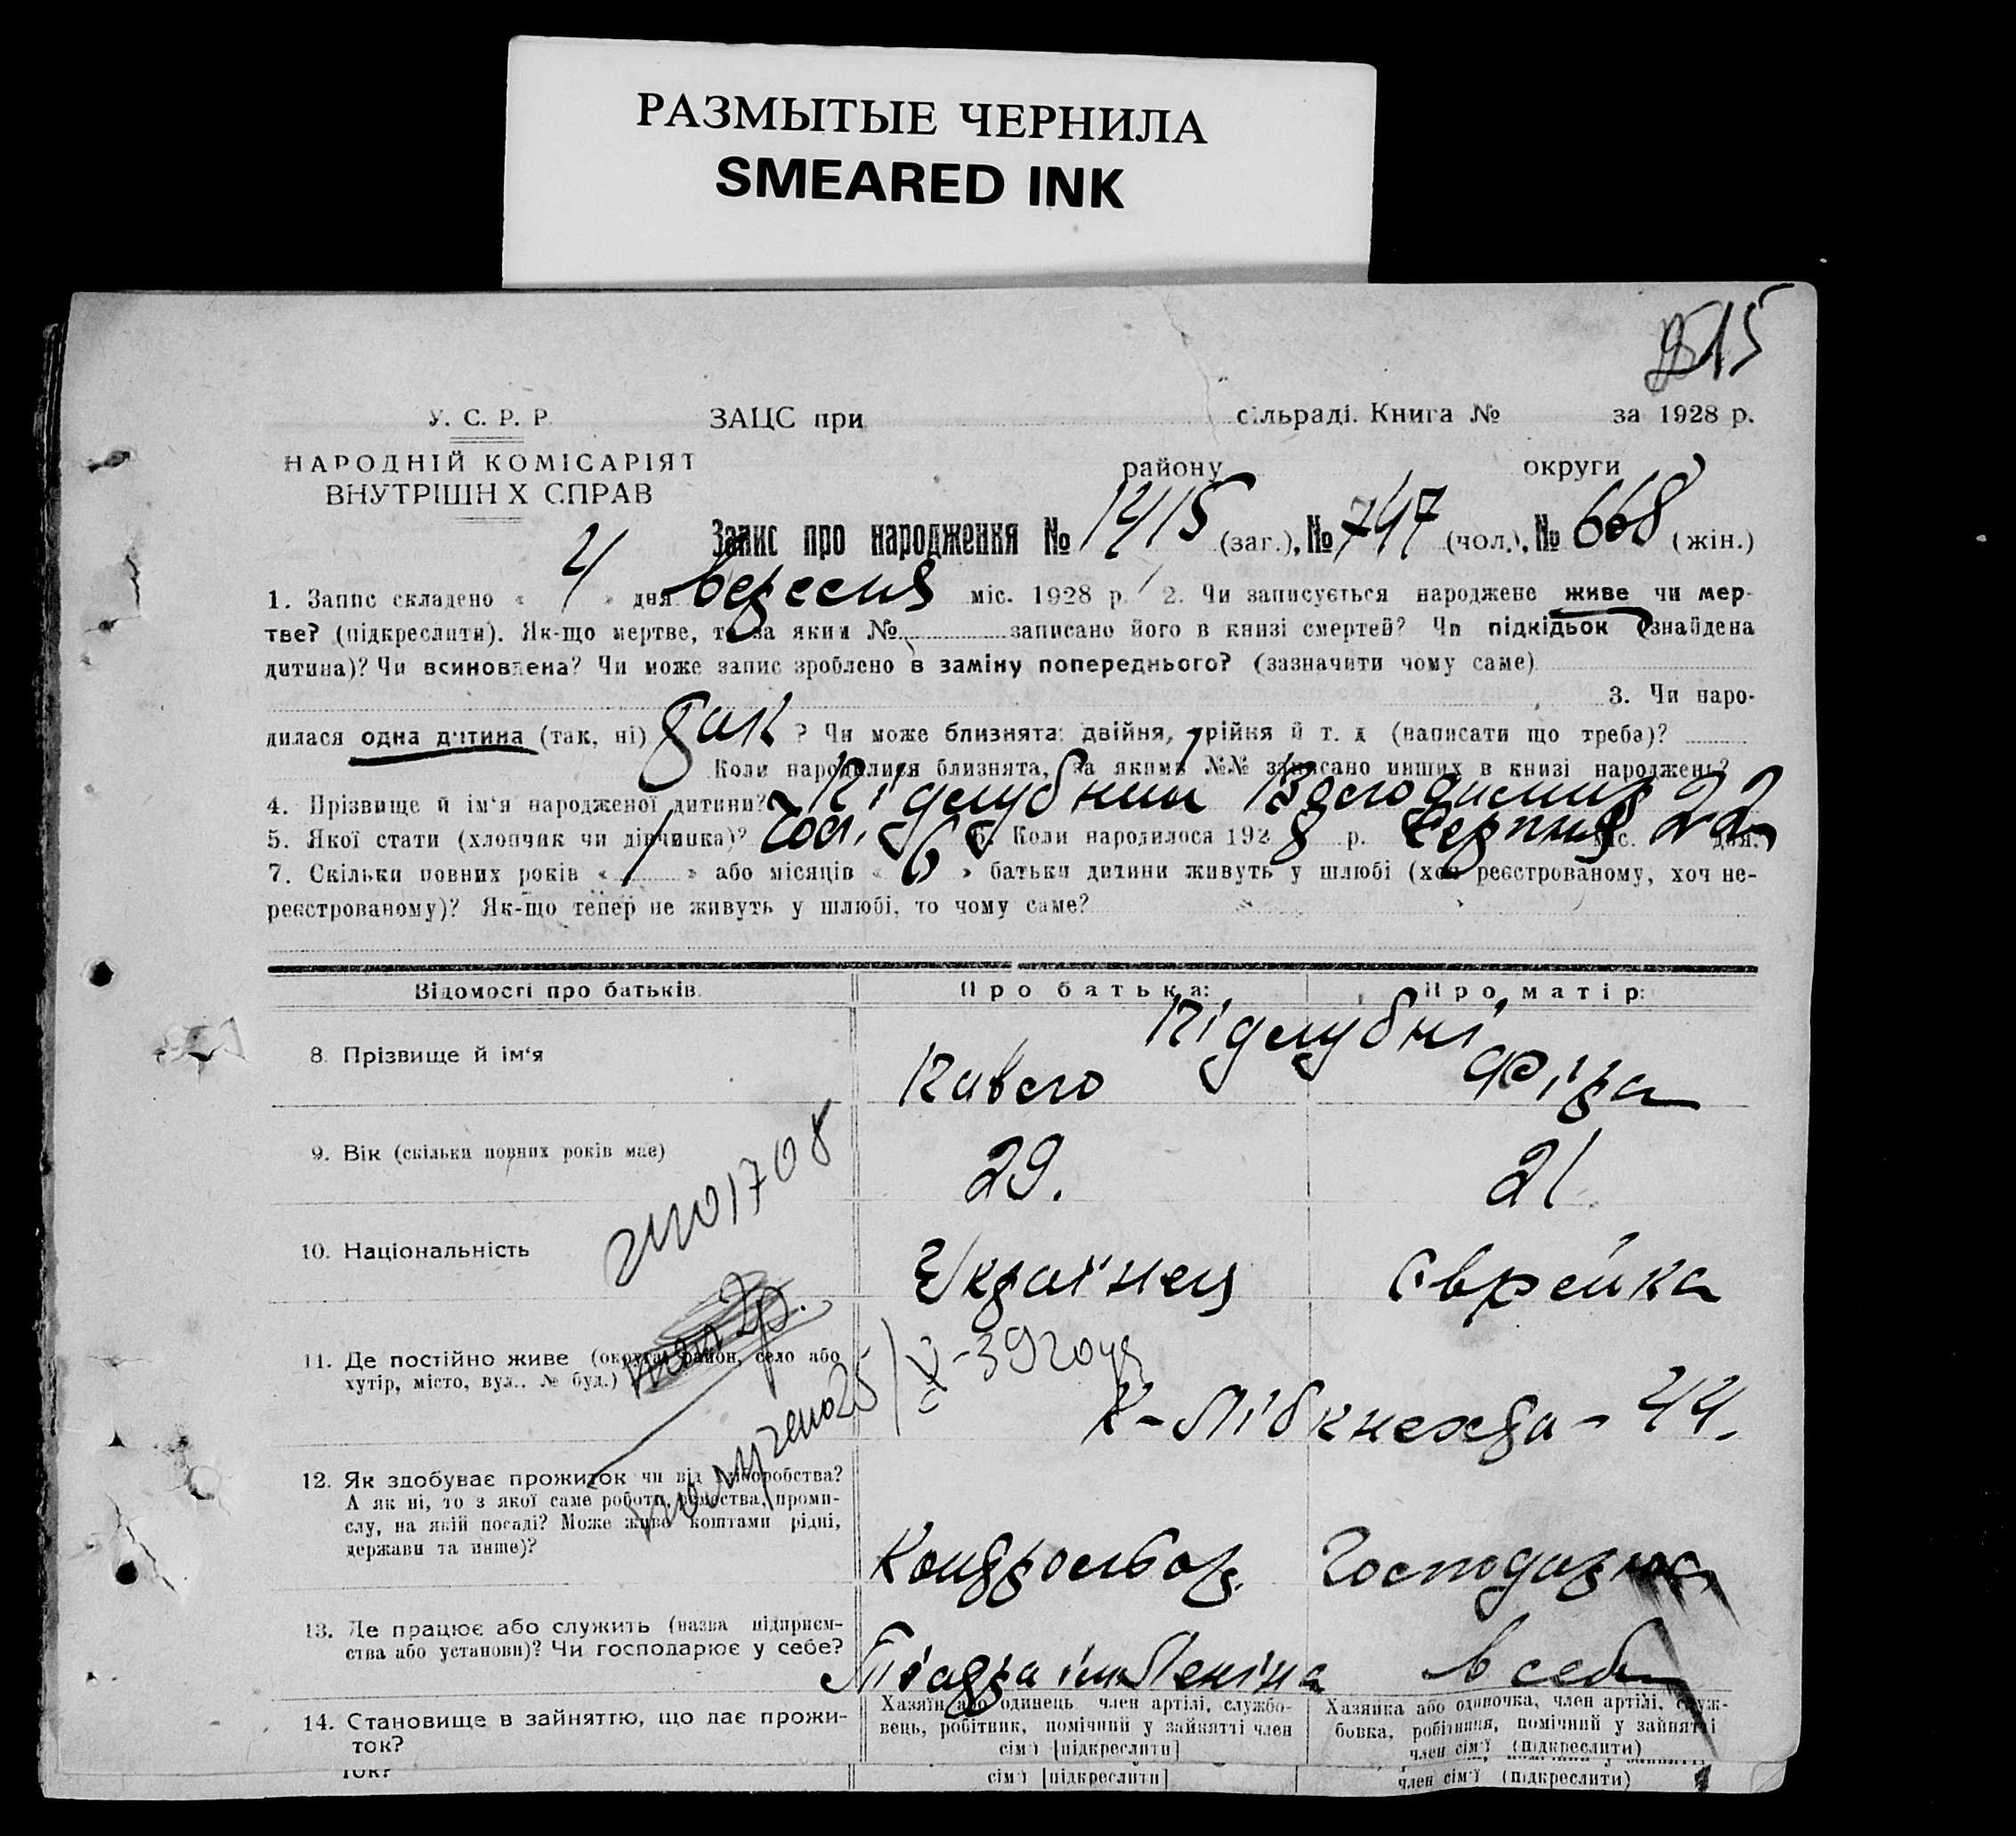 РАЗМЫТЫЕ ЧЕРНИЛА
SMEARED INK
У. С. Р. Р. ЗАЦС при сільраді. Книга № за 1928 р.
НАРОДНІЙ КОМІСАРІЯТ
ВНУТРІШН Х СПРАВ
району округи
Запис про народження № 1415 (заг.), № 747 (чол.), № 668 (жін.)
1. Запис складено « 4 » дня вересня міс. 1928 р. 2. Чи записується народжене живе чи мер-
тве? (підкреслити). Як-що мертве, то за яким № записано його в книзі смертей? Чи підкідьок (знайдена
дитина)? Чи всиновлена? Чи може запис зроблено в заміну попереднього? (зазначити чому саме)
3. Чи наро-
дилася одна дитина (так, ні) так ? Чи може близнята: двійня, трійня й т. д (написати що треба)?
Коли народилися близнята, за якими №№ записано инших в книзі народжень?
4. Прізвище й ім'я народженої дитини? Підлубний Володимир
5. Якої стати (хлопчик чи дівчинка)? 6. Коли народилося 1928 р. серпня міс. 22 дня.
7. Скільки повних років « 1 » або місяців « 6 » батьки дитини живуть у шлюбі (хоч реєстрованому, хоч не-
реєстрованому)? Як-що тепер не живуть у шлюбі, то чому саме?
Відомості про батьків. Про батька: Про матір:
Підлубні
8. Прізвище й ім'я Павло Фіра
9. Вік (скільки повних років має) 29. 21
10. Національність Українец Єврейка
11. Де постійно живе (округа, район, село або
хутір, місто, вул., № буд.) К-Лібкнехта - 44.
12. Як здобуває прожиток чи від хліборобства?
А як ні, то з якої саме роботи, ремества, проми-
слу, на якій посаді? Може живе коштами рідні,
держави та инше)? Господарює
13. Де працює або служить (назва підприєм-
ства або установи)? Чи господарює у себе? ім Леніна в себе
14. Становище в зайняттю, що дає прожи-
ток?
Хазяїн або одинець член артілі, службо-
вець, робітник, помічний у зайнятті член
сім'ї [підкреслити]
Хазяйка або одиночка, член артілі, служ-
бовка, робітниця, помічний у зайнятті
член сім'ї (підкреслити)
ток?
сім'ї [підкреслити]
член сім'ї (підкреслити)